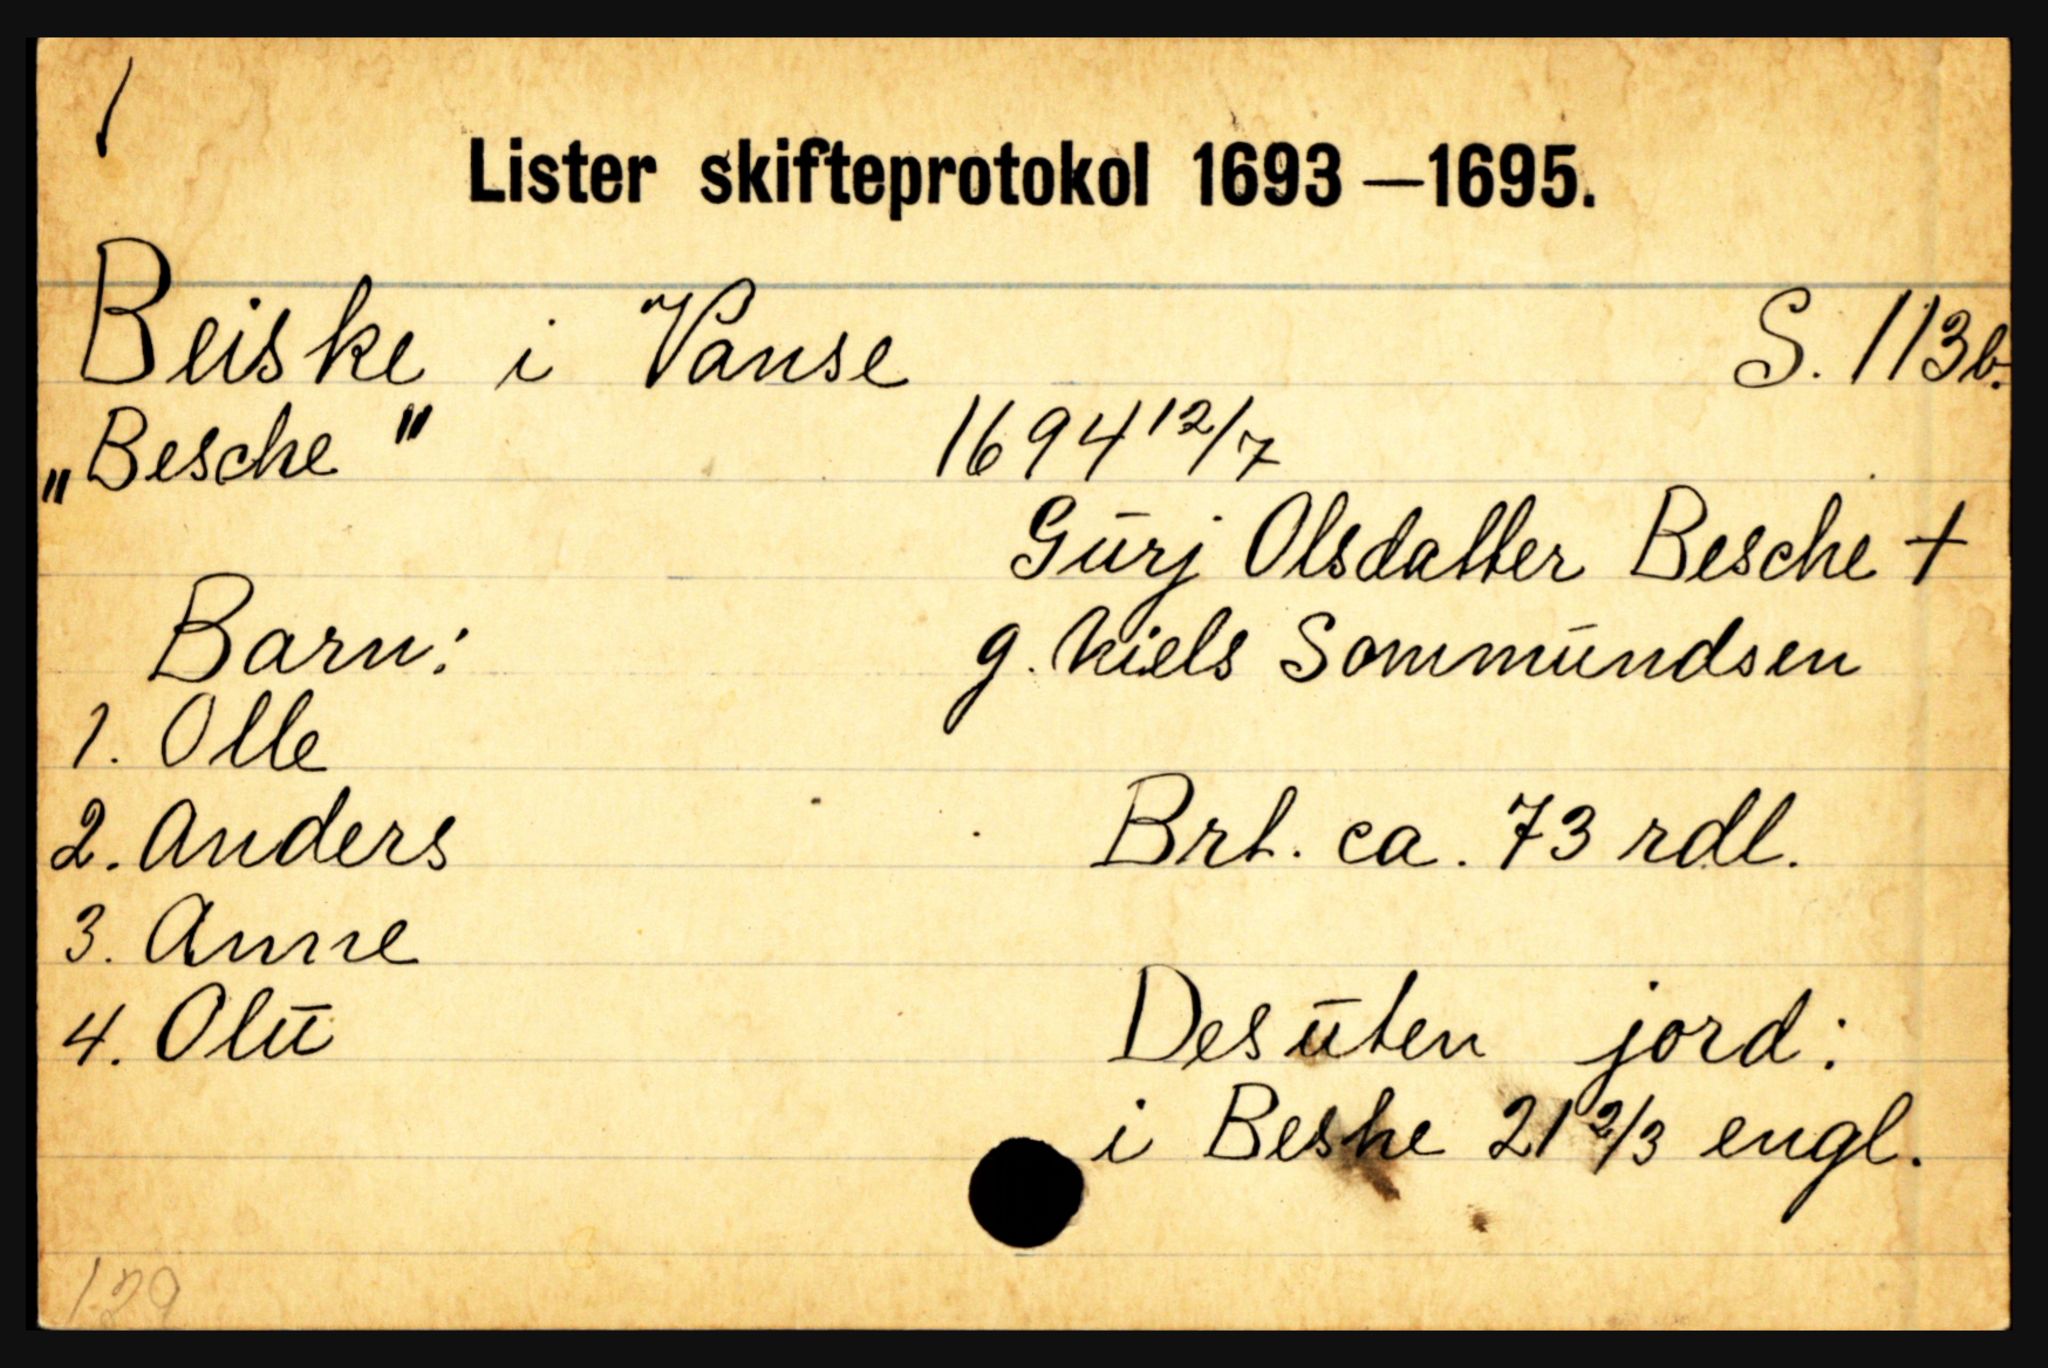 Lister skifteprotokol 1693—1695.
Beiske i Vanse S. 113b.
„Besche" 1694 12/7
Gūrj Olsdatter Besche +
Barn: g. Niels Sommūndsen
1. Olle
2. Anders Brt. ca. 73 rdl.
3. Anne
4. Olū Desūten jord:
i Beshe 21 2/3 engl.
129